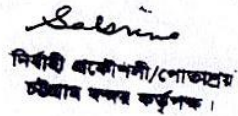 Sabrina
নির্বাহী প্রকৌশলী/পোতাশ্রয়
চট্টগ্রাম বন্দর কর্তৃপক্ষ।